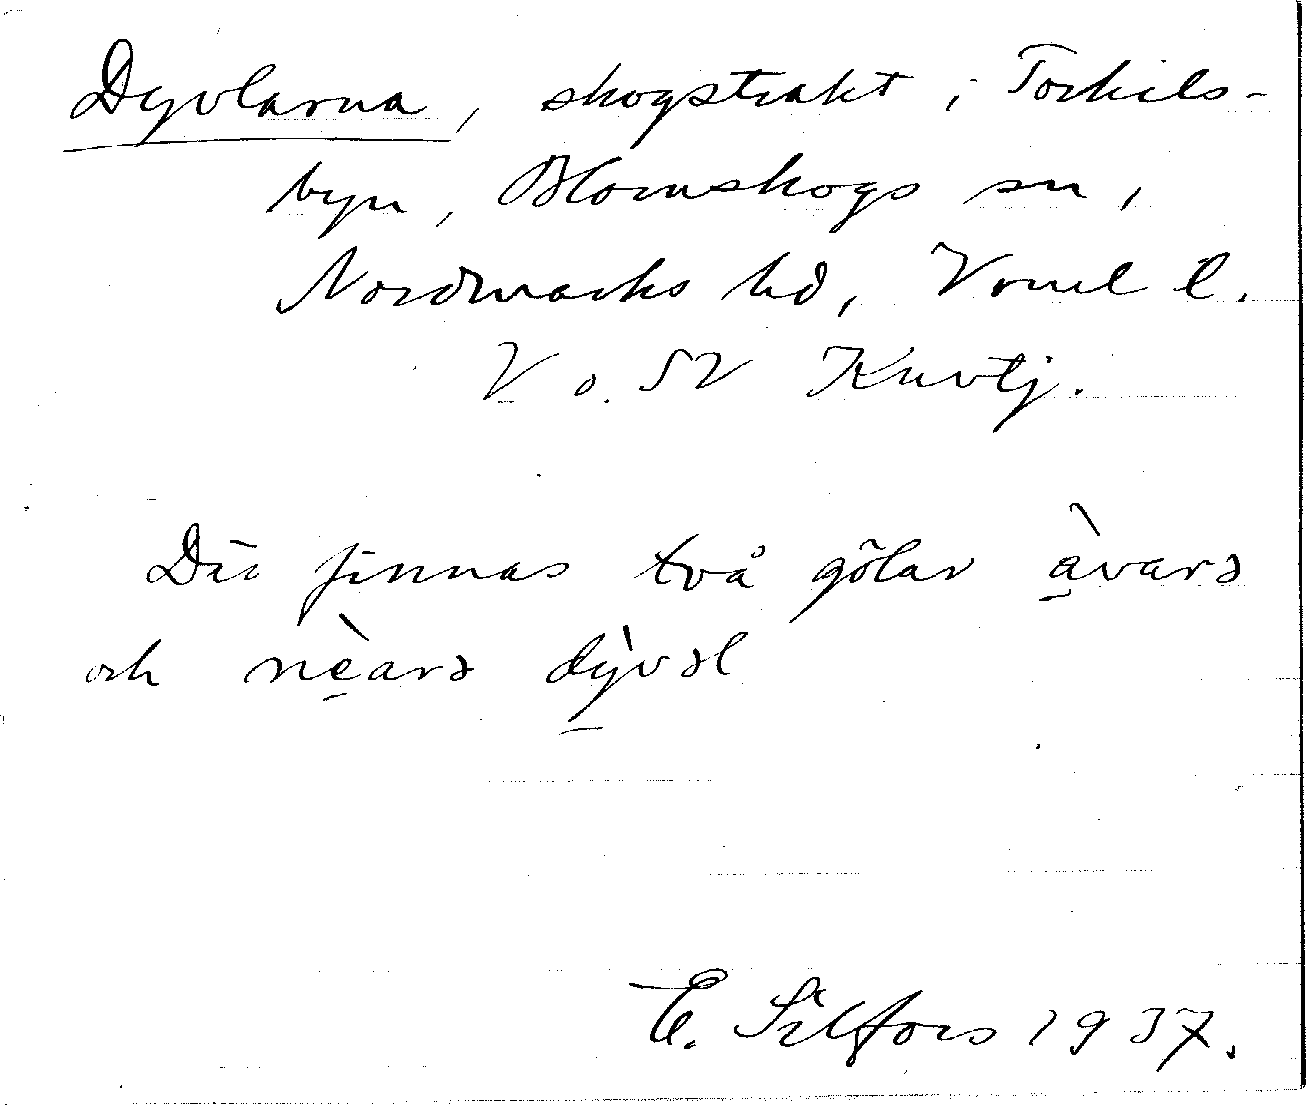 Dyvlarna, skogstrakt i Torkils-
byn, Blomskogs sn,
Nordmarks hd, Vrml l.
V o. SV Kuvtj.
Där finnas två gölar ȧ̱̀varə
och nè̱arə dỳ̱vəl
E. Silfors 1937.